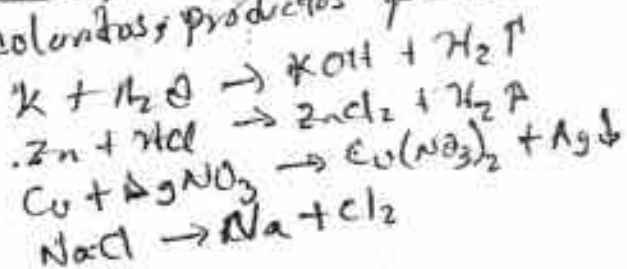 productos
K + H₂O → KOH + H₂↑
.Zn + HCl → ZnCl₂ + H₂↑
Cu + AgNO₃ → Cu(NO₃)₂ + Ag↓
NaCl → Na + Cl₂